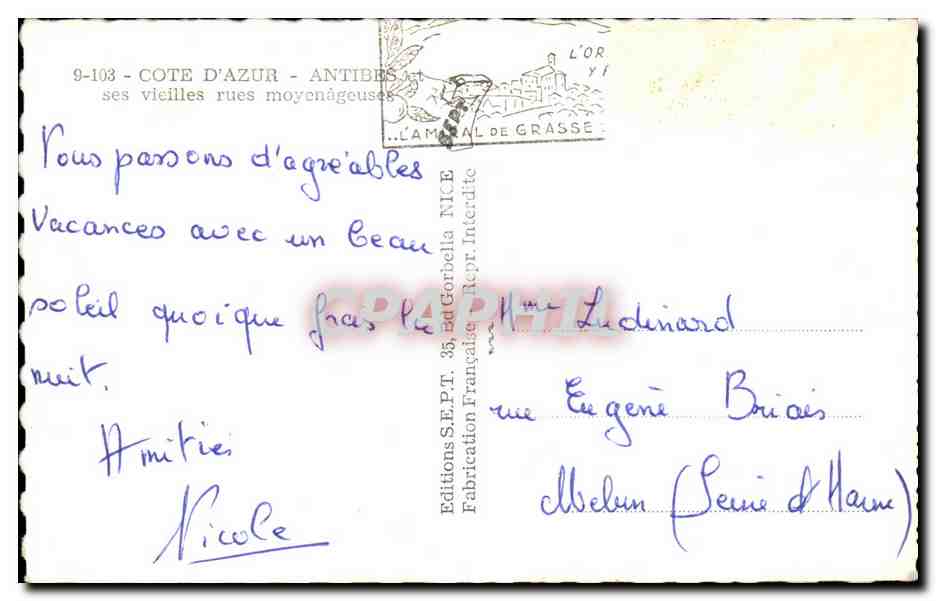 9-103 - COTE D'AZUR - ANTIBES et
ses vieilles rues moyenâgeuses
L'OR
Y P
..L'AM AL DE GRASSE
Nous passons d'agréables
vacances avec un beau
soleil quoique frais la
nuit.
Amitiés
Nicole
Editions S.E.P.T. 35, Bd Gorbella NICE
Fabrication Française - Repr. Interdite
CPAPHIL
Mme Ludinard
rue Eugène Briais
Melun (Seine et Marne)